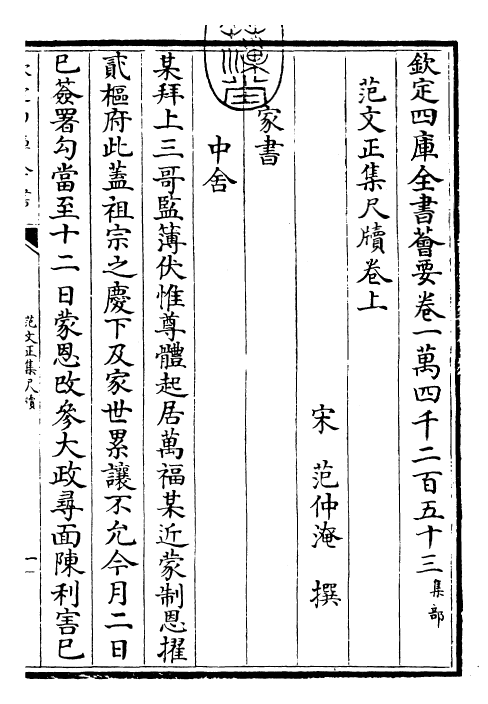 欽定四庫全書薈要卷一萬四千二百五十三集部
范文正集尺牘卷上
宋 范仲淹 撰
家書
中舍
某拜上三哥監簿伏惟尊體起居萬福某近蒙制恩擢
貳樞府此蓋祖宗之慶下及家世累讓不允今月二日
已簽署勾當至十二日蒙恩改參大政尋面陳利害已
范文正集尺牘
一